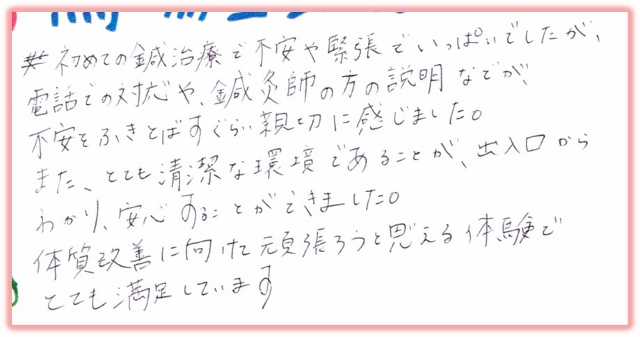 初めての鍼治療で不安や緊張でいっぱいでしたが、
電話での対応や、鍼灸師の方の説明などが、
不安をふきとばすぐらい親切に感じました。
また、とても清潔な環境であることが、出入口から
わかり、安心することができました。
体質改善に向けて頑張ろうと思える体験で
とても満足しています